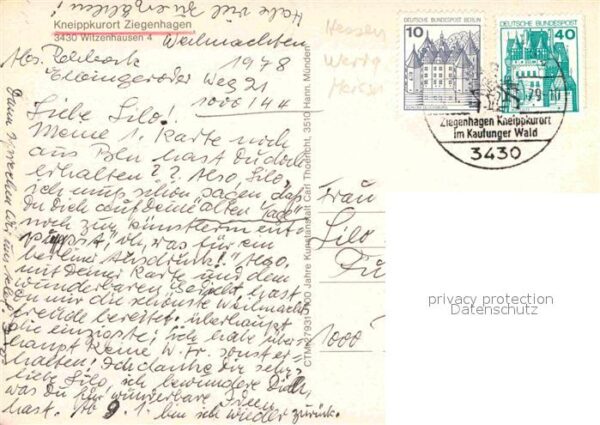 Habe viel zu erzählen!
Kneippkurort Ziegenhagen
3430 Witzenhausen 4
Weihnachten
1978
Abs.
Weg 21
1000 / 44
Liebe Lilo!
Meine 1. Karte noch
aus Bln hast Du doch
erhalten? ? Also, Lilo,
ich muß schon sagen, daß
Du dich auf deine alten Tage
noch zum Künstler ent-
puppst, oh, was für ein
berliner Ausdruck!" Also,
mit Deiner Karte und dem
wunderbaren Gedicht hast
Du mir die schönste Weihnachts
freude bereitet. überhaupt
die einzigste; ich habe über-
haupt keine W. Fr. sonst er-
halten! Ich danke Dir sehr
liebe Lilo, ich bewundere Dich,
was Du für wunderbare Ideen
hast. Ab 9. 1. bin ich wieder zurück.
Hessen
Werra
CTM 100 Jahre Kunstanstalt Carl Thoericht, 3510 Hann. Münden
10
DEUTSCHE BUNDESPOST BERLIN
DEUTSCHE BUNDESPOST
40
79
Ziegenhagen Kneippkurort
im Kaufunger Wald
3430
Frau
Lilo
1000
privacy protection
Datenschutz